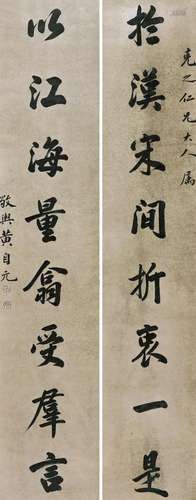 克之仁兄大人属
於漢宋间折衷一是
以江海量翕受羣言
敬輿黄自元